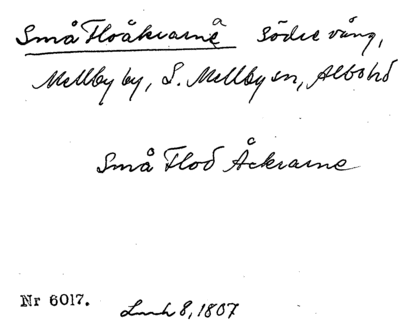 Små Floåkrarna Södre vång,
Mellby by, S. Mellby sn, Albo hd
Små Flod Åckrarne
Nr 6017.
Lmh 8, 1807